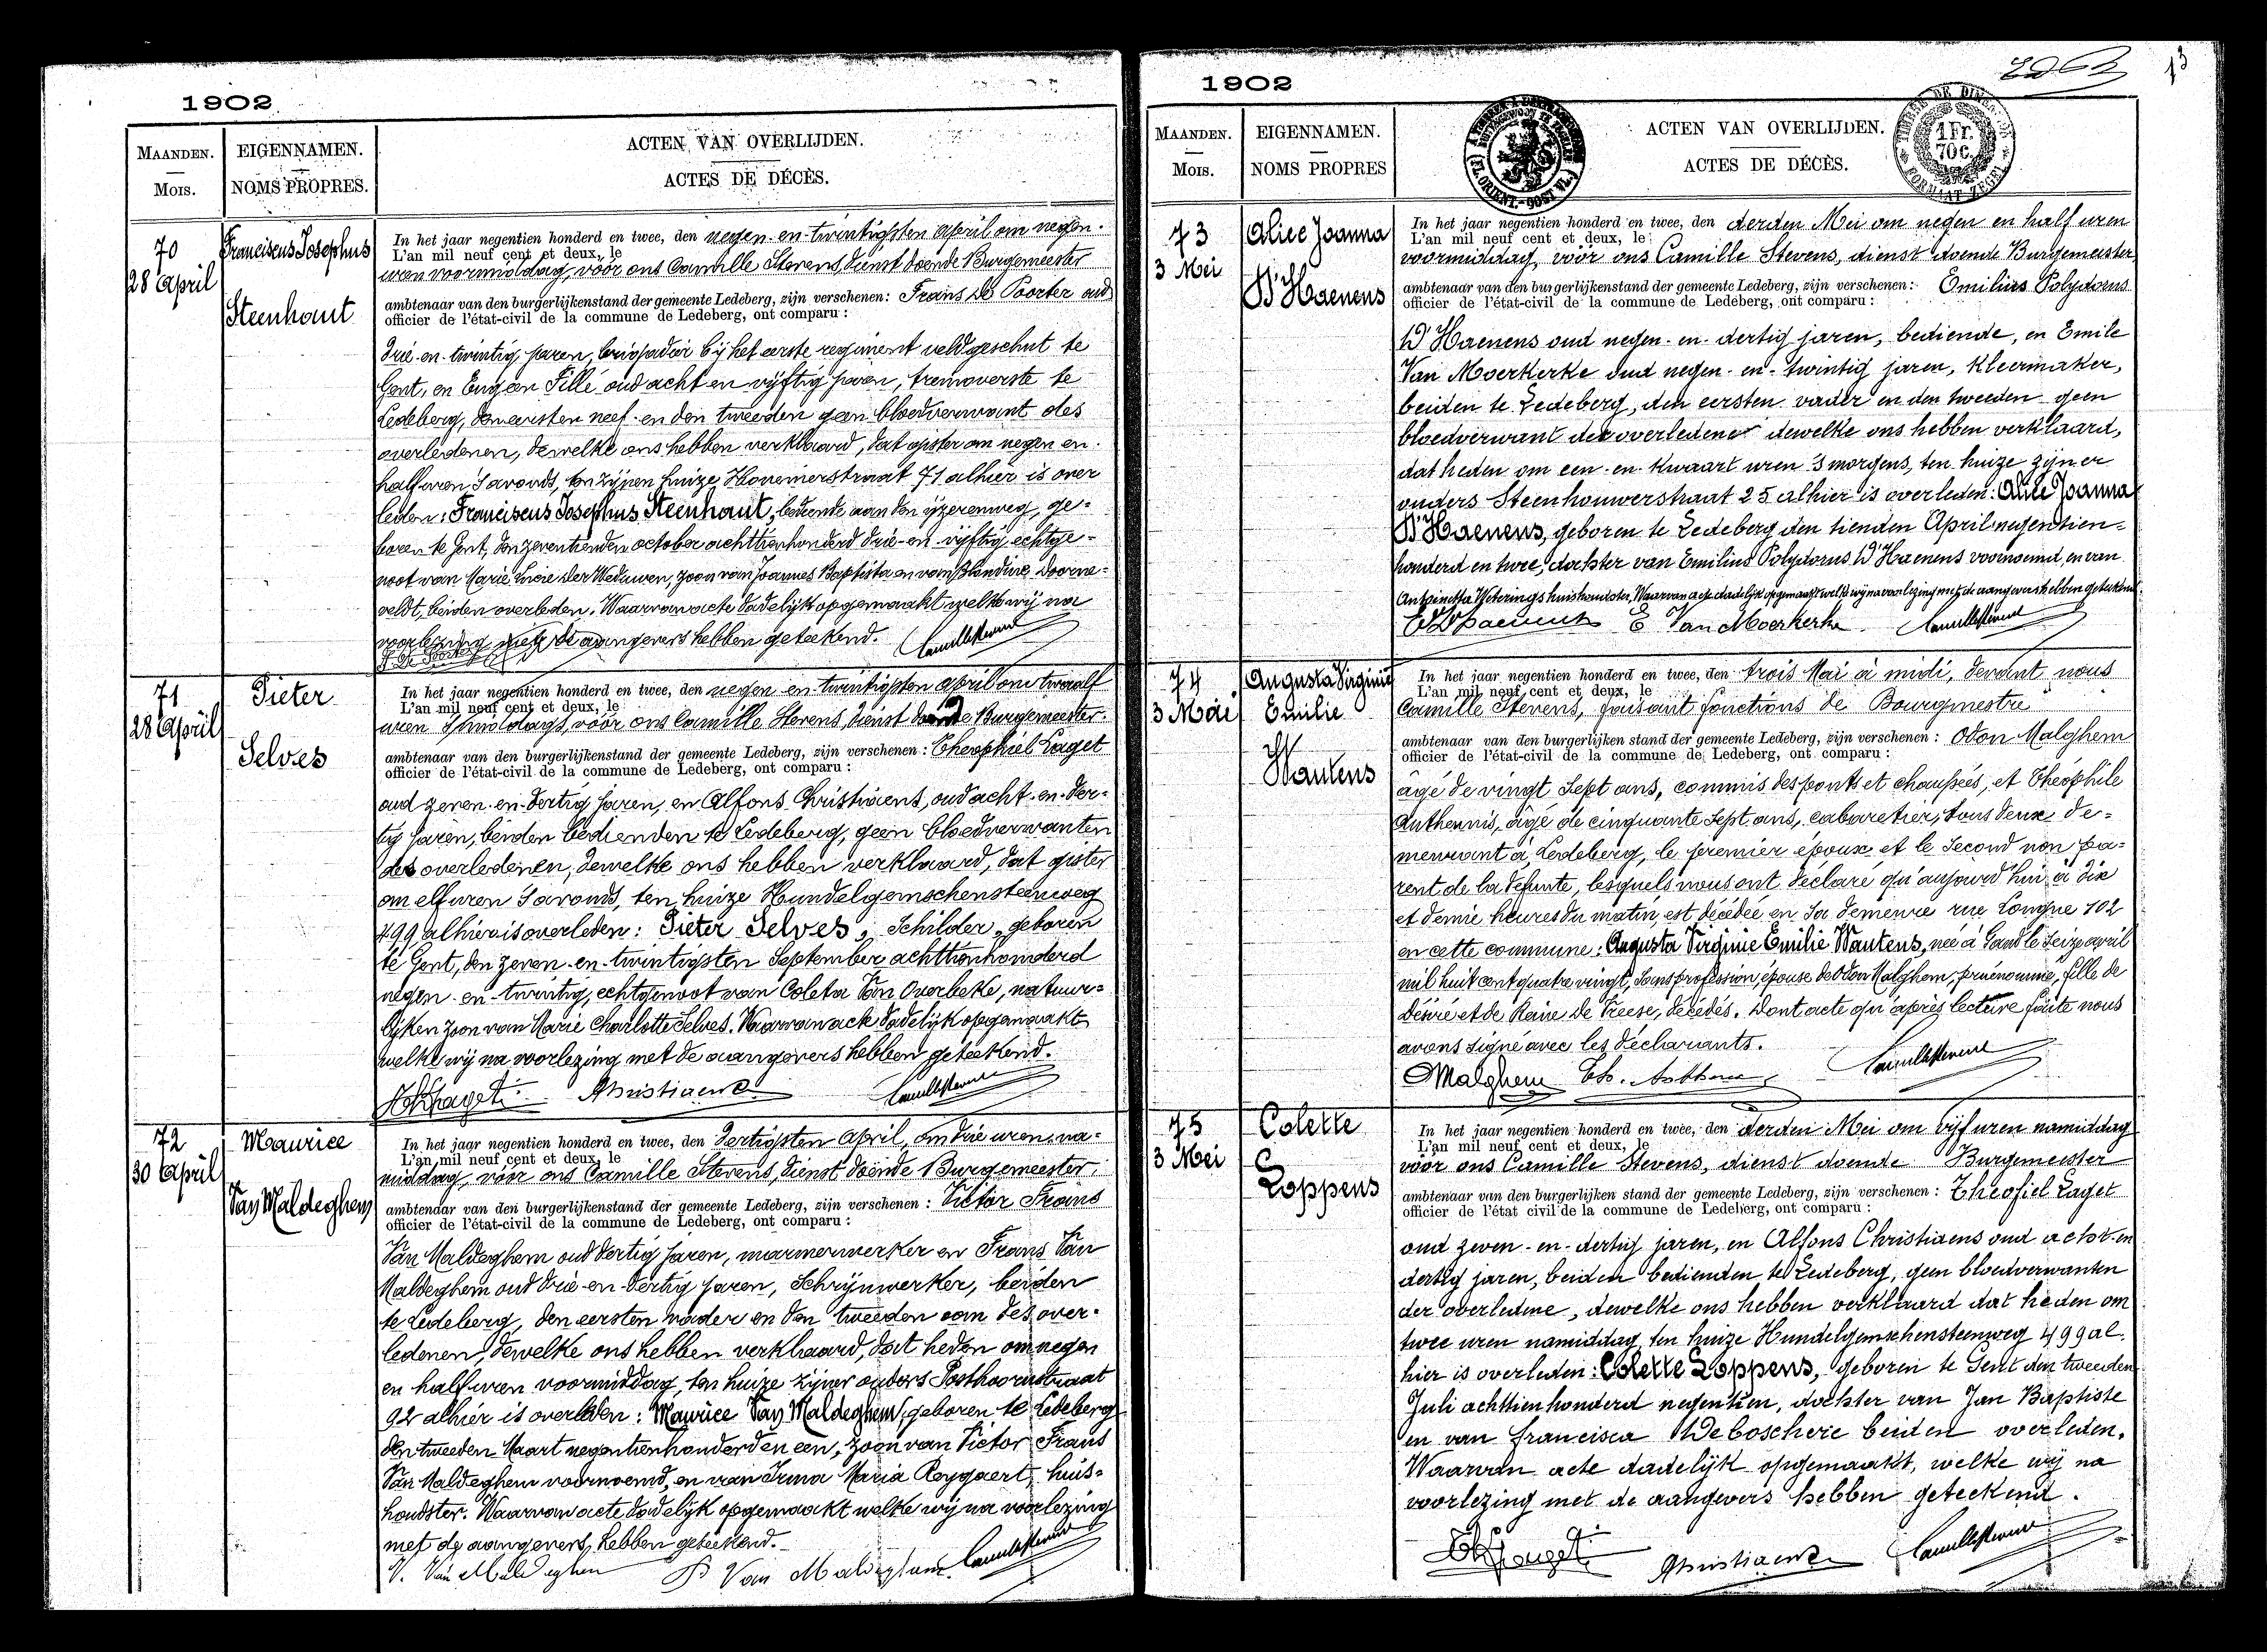 1902
MAANDEN.
MOIS.
EIGENNAMEN.
NOMS PROPRES.
ACTEN VAN OVERLIJDEN.
ACTES DE DÉCÈS.
70
28 April
Franciscus Josephus
Steenhout
In het jaar negentien honderd en twee, den negen-en-twintigsten april om negen
L'an mil neuf cent et deux, le
uren voormiddag, vóór ons Camille Stevens, dienst doende Burgemeester
ambtenaar van den burgerlijkenstand der gemeente Ledeberg, zijn verschenen: Frans De Poorter oud
officier de l'état-civil de la commune de Ledeberg, ont comparu:
drie-en-twintig jaren, brigadier bij het eerste regiment veldgeschut te
Gent, en Eugeen Fillé oud acht en vijftig jaren, tremoverste te
Ledeberg, den eersten neef en den tweeden geen bloedverwant des
overledenen, dewelke ons hebben verklaard, dat gister om negen en
half uren 's avonds, ten zijnen huize Hovenierstraat 71 alhier is over
leden: Franciscus Josephus Steenhout, bediende aan den ijzerenweg, ge-
boren te Gent, den zeventienden october achttienhonderd drie-en-vijftig, echtge-
noot van Marie Lucie der Weduwen, zoon van Joannes Baptista en van Blandine Doorne-
veldt, beiden overleden. Waarvan acte dadelijk opgemaakt welke wij na
voorlezing met de aangevers hebben geteekend.
71
28 April
Pieter
Selves
In het jaar negentien honderd en twee, den negen en twintigsten april om twaalf
L'an mil neuf cent et deux, le
uren 's middags, vóór ons Camille Stevens, dienst doende Burgemeester
ambtenaar van den burgerlijkenstand der gemeente Ledeberg, zijn verschenen: Theophiel Laget
officier de l'état-civil de la commune de Ledeberg, ont comparu:
oud zeven-en-dertig jaren, en Alfons Christiaens, oud acht-en-der-
tig jaren, beiden bedienden te Ledeberg, geen bloedverwanten
des overledenen, dewelke ons hebben verklaard, dat gister
om elf uren 's avonds, ten huize Hundelgemschensteenweg
499 alhier is overleden: Pieter Selves, Schilder, geboren
te Gent, den zeven-en-twintigsten September achttienhonderd
negen-en-twintig, echtgenoot van Coleta Van Overbeke, natuur-
lijken zoon van Marie Charlotte Selves. Waarvan acte dadelijk opgemaakt
welke wij na voorlezing met de aangevers hebben geteekend.
Christiaens
72
30 April
Maurice
Van Maldeghem
In het jaar negentien honderd en twee, den dertigsten April, om drie uren na-
L'an mil neuf cent et deux, le
middag, vóór ons Camille Stevens, dienst doende Burgemeester,
ambtenaar van den burgerlijkenstand der gemeente Ledeberg, zijn verschenen: Victor Frans
officier de l'état-civil de la commune de Ledeberg, ont comparu:
Van Maldeghem oud dertig jaren, marmerwerker en Frans Van
Maldeghem oud drie-en-dertig jaren, Schrijnwerker, beiden
te Ledeberg, den eersten vader en den tweeden oom des over-
ledenen, dewelke ons hebben verklaard, dat heden om negen
en half uren voormiddag, ten huize zijner ouders Posthoornstraat
92 alhier is overleden: Maurice Van Maldeghem, geboren te Ledeberg
den tweeden Maart negentienhonderd en een, zoon van Victor Frans
Van Maldeghem voornoemd, en van Irma Maria Reygaert, huis-
houdster. Waarvan acte dadelijk opgemaakt welke wij na voorlezing
met de aangevers hebben geteekend.
V. Van Maldeghem Van Maldeghem
1902
13
MAANDEN.
MOIS.
EIGENNAMEN.
NOMS PROPRES
ACTEN VAN OVERLIJDEN.
ACTES DE DÉCÈS.
TIMBRE DE DIMENSION
1 Fr.
70 C.
FORMAAT ZEGEL
73
3 Mei
Alice Joanna
D'Haenens
In het jaar negentien honderd en twee, den derden Mei om negen en half uren
L'an mil neuf cent et deux, le
voormiddag, vóór ons Camille Stevens, dienst doende Burgemeester
ambtenaar van den burgerlijkenstand der gemeente Ledeberg, zijn verschenen: Emilius Polydorus
officier de l'état-civil de la commune de Ledeberg, ont comparu:
D'Haenens oud negen-en-dertig jaren, bediende, en Emile
Van Moerkerke oud negen-en-twintig jaren, Kleermaker,
beiden te Ledeberg, den eersten vader en den tweeden geen
bloedverwant der overledene dewelke ons hebben verklaard,
dat heden om een-en-kwaart uren 's morgens, ten huize zijner
ouders Steenhouwerstraat 25 alhier is overleden: Alice Joanna
D'Haenens, geboren te Ledeberg den tienden April negentien-
honderd en twee, dochter van Emilius Polydorus D'Haenens voornoemd, en van
Antoinetta Weterings huishoudster, Waarvan acte dadelijk opgemaakt welke wij na voorlezing met de aangevers hebben geteekend.
E. Van Moerkerke
74
3 Mai
Augusta Virginie
Emilie
Wautens
In het jaar negentien honderd en twee, den trois Mai à midi, devant nous
L'an mil neuf cent et deux, le
Camille Stevens, faisant fonctions de Bourgmestre
ambtenaar van den burgerlijken stand der gemeente Ledeberg, zijn verschenen: Odon Malghem
officier de l'état-civil de la commune de Ledeberg, ont comparu:
âgé de vingt Sept ans, commis des ponts et chaussées, et Théophile
Anthennis, âgé de cinquante Sept ans, cabaretier, tous deux de-
meurant à Ledeberg, le premier époux et le Second non pa-
rent de la défunte, lesquels nous ont déclaré qu'aujourd'hui à dix
et demie heures du matin, est décédée en Sa demeure rue Longue 102
en cette commune: Augusta Virginie Emilie Wautens, née à Gand le Seize avril
mil huit cent quatre vingt, Sans profession, épouse de Odon Malghem, prénommé, fille de
Désiré et de Reine De Vreese, décédés. Dont acte qu'après lecture faite nous
avons signé avec les déclarants.
Malghem
75
3 Mei
Colette
Loppens
In het jaar negentien honderd en twee, den derden Mei om vijf uren namiddag
L'an mil neuf cent et deux, le
vóór ons Camille Stevens, dienst doende Burgemeester
ambtenaar van den burgerlijken stand der gemeente Ledeberg, zijn verschenen: Theofiel Laget
officier de l'état civil de la commune de Ledeberg, ont comparu:
oud zeven-en-dertig jaren, en Alfons Christiaens oud acht-en
dertig jaren, beiden bedienden te Ledeberg, geen bloedverwanten
der overledene, dewelke ons hebben verklaard dat heden om
twee uren namiddag, ten huize Hundelgemschensteenweg 499 al-
hier is overleden: Colette Loppens, geboren te Gent den tweeden
Juli achttienhonderd negentien, dochter van Jan Baptiste
en van Francisca De boschere beiden overleden.
Waarvan acte dadelijk opgemaakt, welke wij na
voorlezing met de aangevers hebben geteekend.
Christiaens